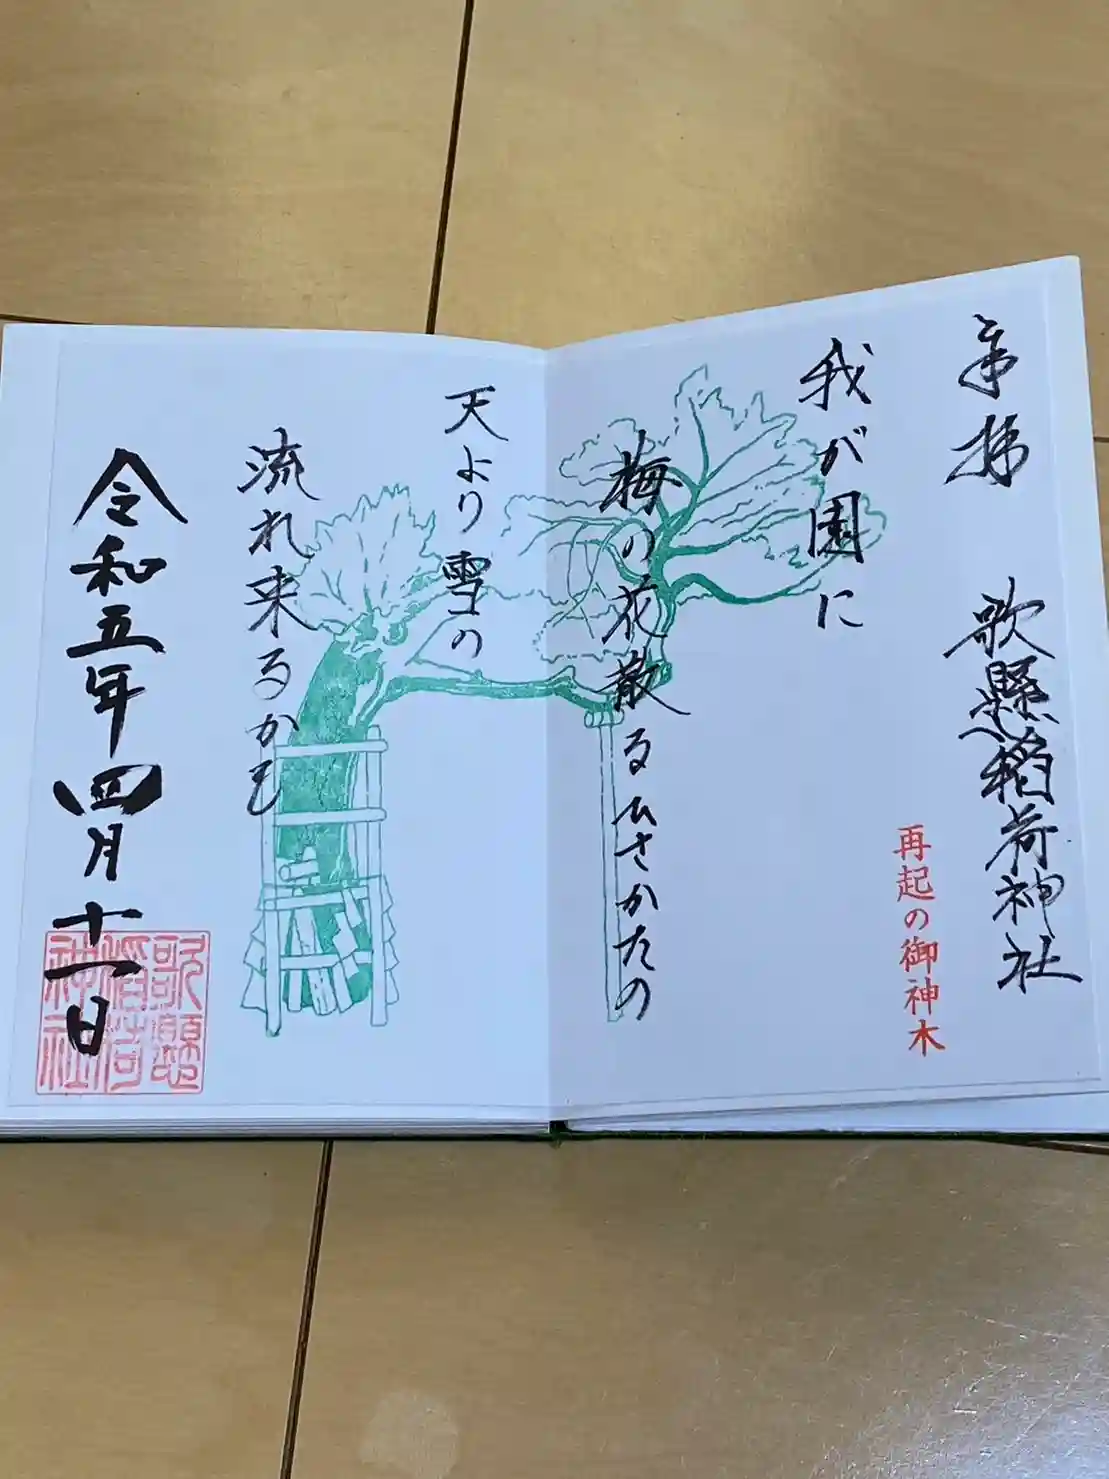 奉拝　歌懸稲荷神社
再起の御神木
我が園に
梅の花散るひさかたの
天より雪の
流れ来るかも
令和五年四月十一日
歌懸
稲荷
神社